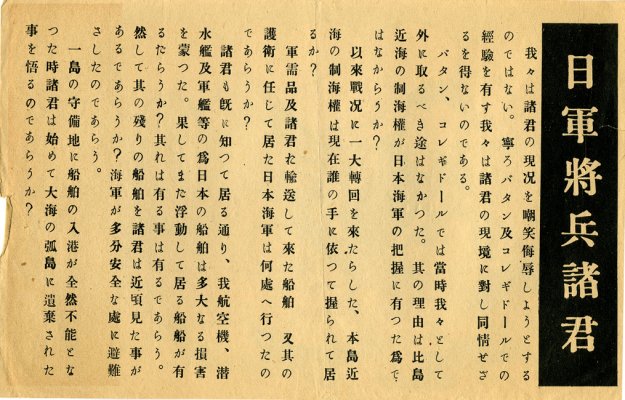 日軍將兵諸君
我々は諸君の現況を嘲笑侮辱しようとする
のではない。寧ろバタン及コレギドールでの
經驗を有す我々は諸君の現境に對し同情せざ
るを得ないのである。
バタン、コレギドールでは當時我々として
外に取るべき途はなかつた。其の理由は比島
近海の制海權が日本海軍の把握に有つた爲で
はなからうか?
以來戰况に一大轉回を來たらした、本島近
海の制海權は現在誰の手に依つて握られて居
るか?
軍需品及諸君を輸送して來た船舶 又其の
護衛に任じて居た日本海軍は何處へ行つたの
であらうか?
諸君も旣に知つて居る通り、我航空機、潜
水艦及軍艦等の爲日本の船舶は多大なる損害
を蒙つた。果してまた浮動して居る船船が有
るだらうか?其れは有る事は有るであらう。
然して其の殘りの船舶を諸君は近頃見た事が
あるであらうか?海軍が多分安全な處に避難
さしたのであらう。
一島の守備地に船舶の入港が全然不能とな
つた時諸君は始めて大海の孤島に遺棄された
事を悟るのであらうか?